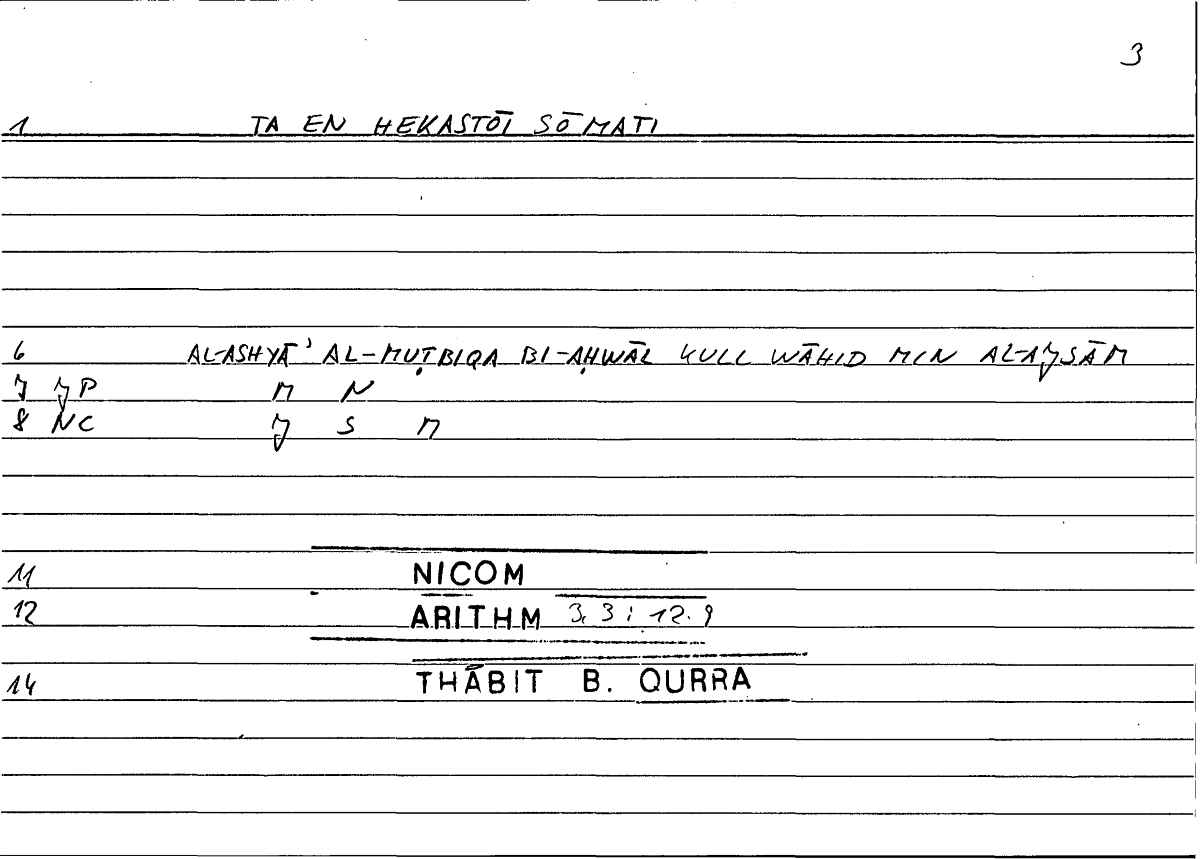 3
1 TA EN HEKASTŌI SŌMATI
6 AL-ASHYĀʾ AL-MUṬBIQA BI-AḤWĀL KULL WĀHID MIN AL-AJSĀM
7 JP M N
8 NC J S M
11 NICOM
12 ARITHM 3,3; 12.9
14 THĀBIT B. QURRA